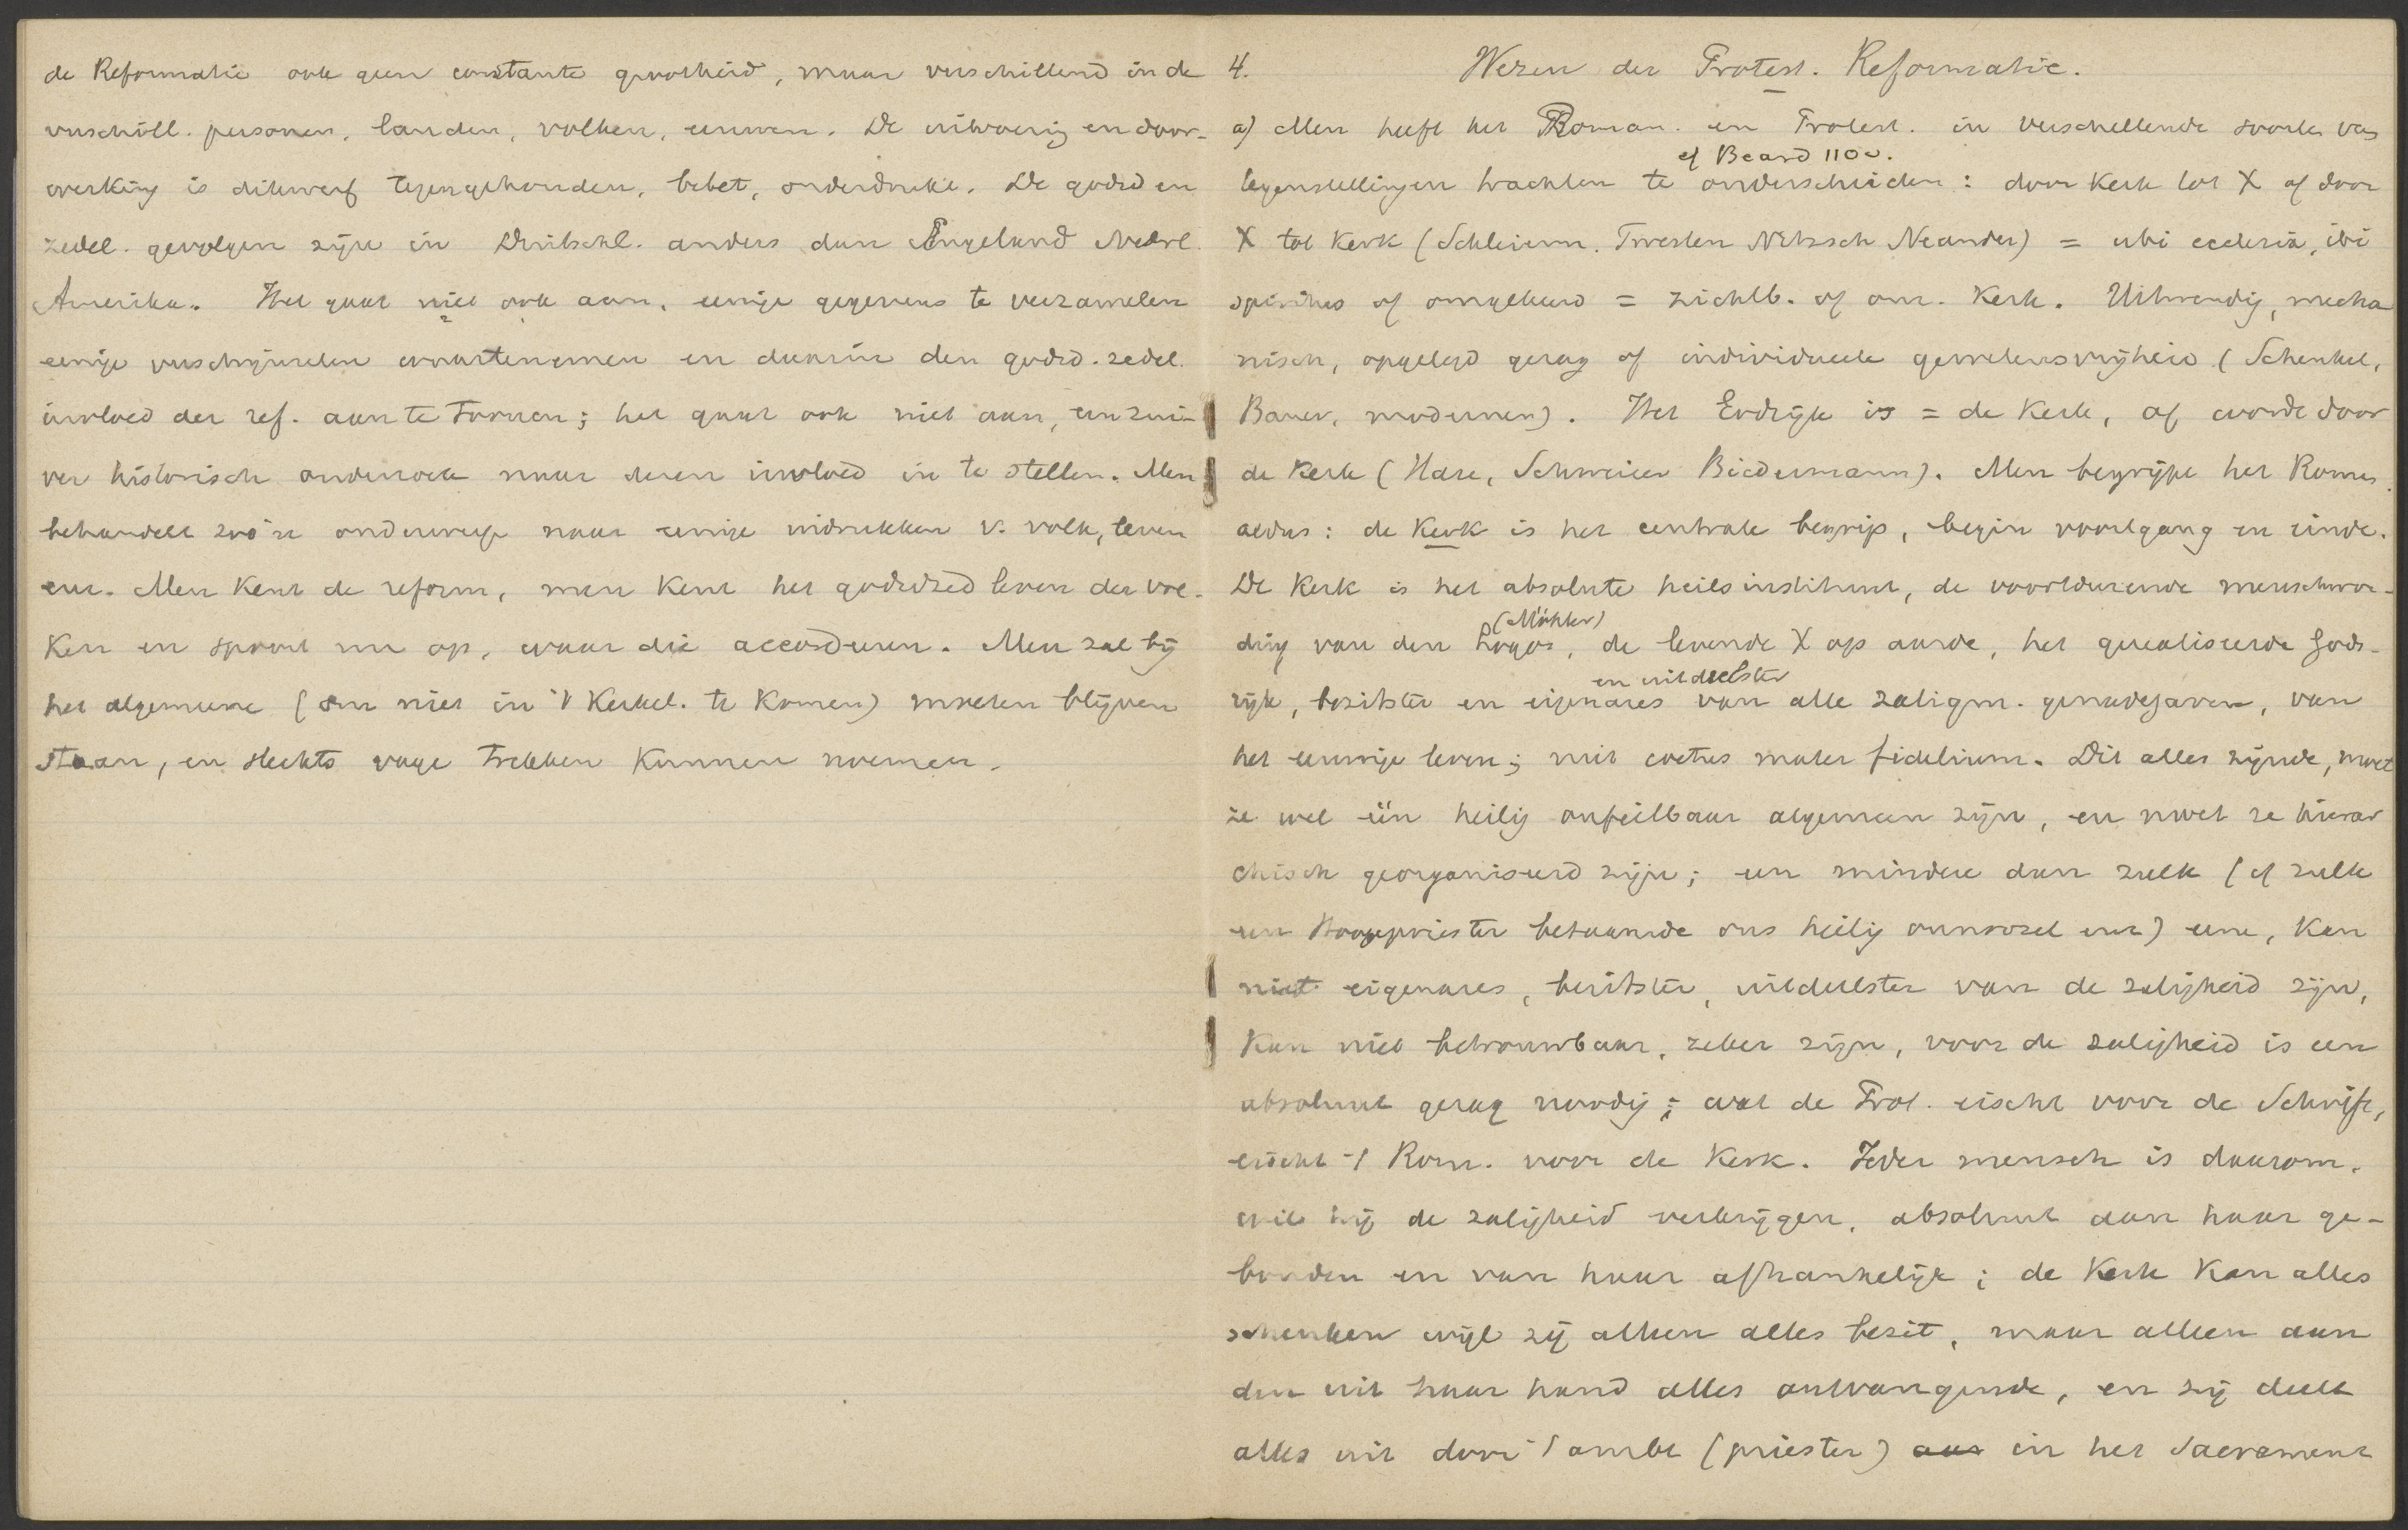 de Reformatie ook geen constante grootheid, maar verschillend in de
verschill. personen, landen, volken, eeuwen. De uitvoering en door-
werking is dikwerf tegengehouden, belet, onderdrukt. De godsd en
zedel. gevolgen zijn in Duitschl. anders dan Engeland Nederl.
Amerika. Het gaat niet ook aan, eenige gegevens te verzamelen
eenige verschijnselen waartenemen en daarin den godsd. zedel.
invloed der ref. aan te toonen; het gaat ook niet aan, een zui-
ver historisch onderzoek naar dezen invloed in te stellen. Men
behandelt zoo'n onderwerp naar eenige indrukken v. volk, leven
enz. Men kent de reform, men kent het godsdzed leven der vol-
ken en spoort nu op, waar die accordeeren. Men zal bij
het algemeene (om niet in 't Kerkel. te komen) moeten blijven
staan, en slechts vage trekken kunnen noemen.
4. Wezen der Protest. Reformatie.
a) Men heeft het Roman. en Protest. in verschellende soorten van
cf Beard 110 v.
tegenstellingen trachten te onderscheiden: door Kerk tot X of door
X tot Kerk (Schleierm. Twesten Nitzsch Neander) = ubi ecclesia, ibi
spiritus of omgekeerd = zichtb. of onz. Kerk. Uitwendig, mecha
nisch, opgelegd gezag of individueele gewetensvrijheid (Schenkel,
Baur, modernen). Het Godrijk is = de Kerk, of wordt door
de Kerk (Hase, Schweizer Biedermann). Men begrijpt het Romes.
aldus: de Kerk is het centrale begrip, begin voortgang en einde.
De Kerk is het absolute heilsinstituut, de voortdurende menschwor-
(Möhler)
ding van den Logos, de levende X op aarde, het gerealiseerde Gods-
en uitdeelster
rijk, bezitster en eigenares van alle zaligm. genadegaven, van
het eeuwige leven; niet coetus mater fidelium. Dit alles zijnde, moet
ze wel één heilig onfeilbaar algemeen zijn, en moet ze hierar
chisch georganiseerd zijn; een mindere dan zulk (cf zulk
een Hoogepriester betaamde ons heilig onnoozel enz) eene, kan
niet eigenares, bezitster, uitdeelster van de zaligheid zijn,
kan niet betrouwbaar, zeker zijn, voor de zaligheid is een
absoluut gezag noodig; wat de Prot. eischt voor de Schrift,
eischt 't Rom. voor de Kerk. Ieder mensch is daarom,
wil hij de zaligheid verkrijgen, absoluut aan haar ge-
bonden en van haar afhankelijk; de Kerk kan alles
schenken wijl zij alleen alles bezit, maar alleen aan
den uit haar hand alles ontvangende, en zij deelt
alles uit door 't ambt (priester) aan in het Sacrament